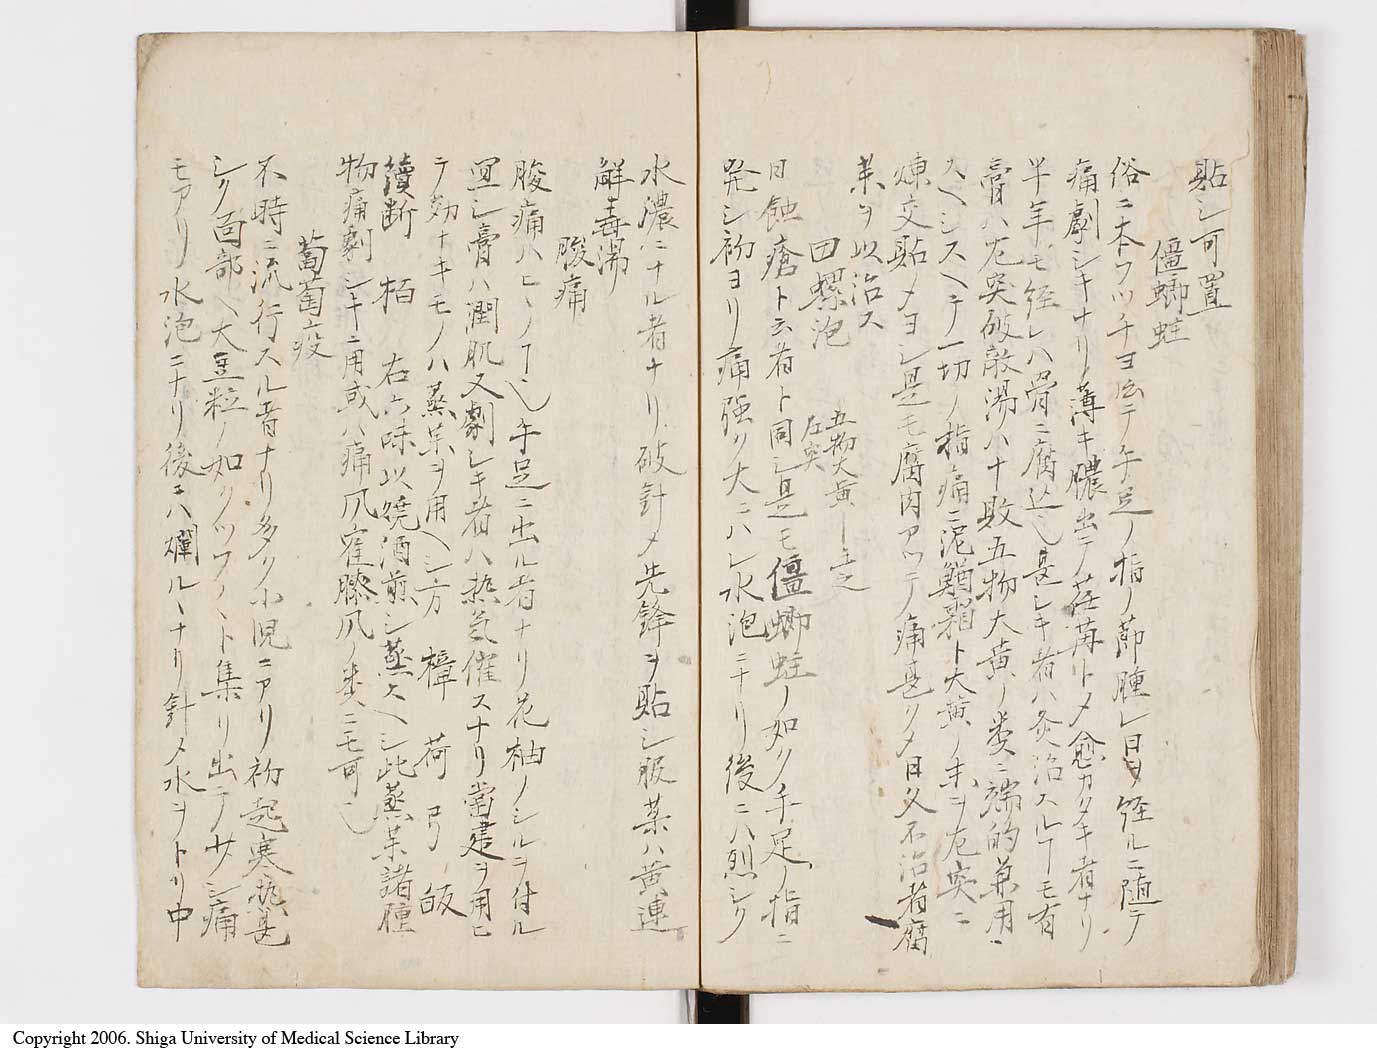 貼シ可置
僵螂蛀
俗ニ本フツチヨト云テ手足ノ指ノ節腫レ日ヲ經ルニ随テ
痛劇シキナリ薄キ膿出テ荏苒トメ愈カタキ者ナリ
半年モ経レハ骨ニ腐込ヘシ甚シキ者ハ灸治スルコモ有
膏ハ左突破敵湯ハ十敗五物大黄ノ类ニ端的兼用
スヘシスヘテ一切ノ指痛ニ泥鰌霜ト大黄ノ末ヲ左突ニ
煉交貼メヨシ是モ腐肉アツテ痛甚クメ日久不治者腐
薬ヲ以治ス
田螺泡 五物大黄ー主之
左突
日蝕瘡ト云者ト同シ是モ僵螂蛀ノ如ク手足ノ指ニ
発シ初ヨリ痛強ク大ニハレ水泡ニナリ後ニハ烈シク
水濃ニナル者ナリ破針メ先鋒ヲ貼シ服薬ハ黄連
解毒湯
朘痛
朘痛ハヒヽノ手足ニ出ル者ナリ花柚ノシルヲ付ル
宜シ膏ハ潤肌又劇シキ者ハ热気催スナリ當建ヲ用ヒ
テ効ナキモノハ蒸薬ヲ用ヘシ方 樟 荷 弓 皈
續断 栢 右六味以焼酒煎シ蒸スヘシ此蒸薬諸腫
物痛劇シキニ用或ハ痛风寉膝风ノ类ニモ可也
萄萄疫
不時ニ流行スル者ナリ多ク小児ニアリ初起寒热甚
シク面部ヘ大豆粒ノ如クツフ〳〵ト集リ出テサシ痛
モアリ水泡ニナリ後ニハ爛ルヽナリ針メ水ヲトリ中
Copyright 2006. Shiga University of Medical Science Library